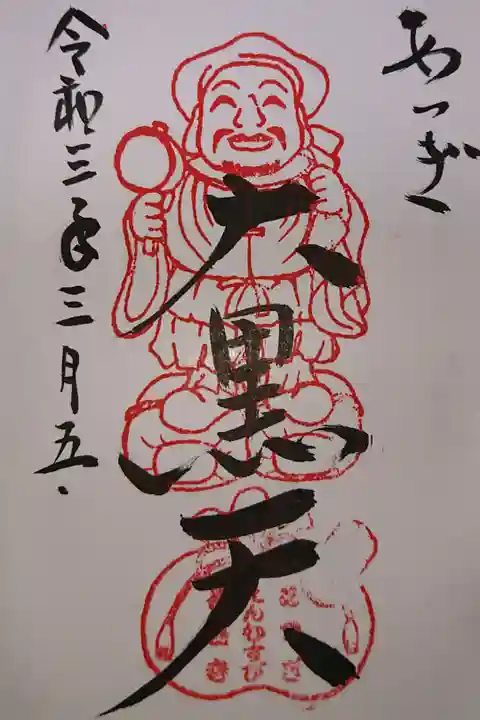 あつぎ
大黒天
令和三年三月五
えんむすび